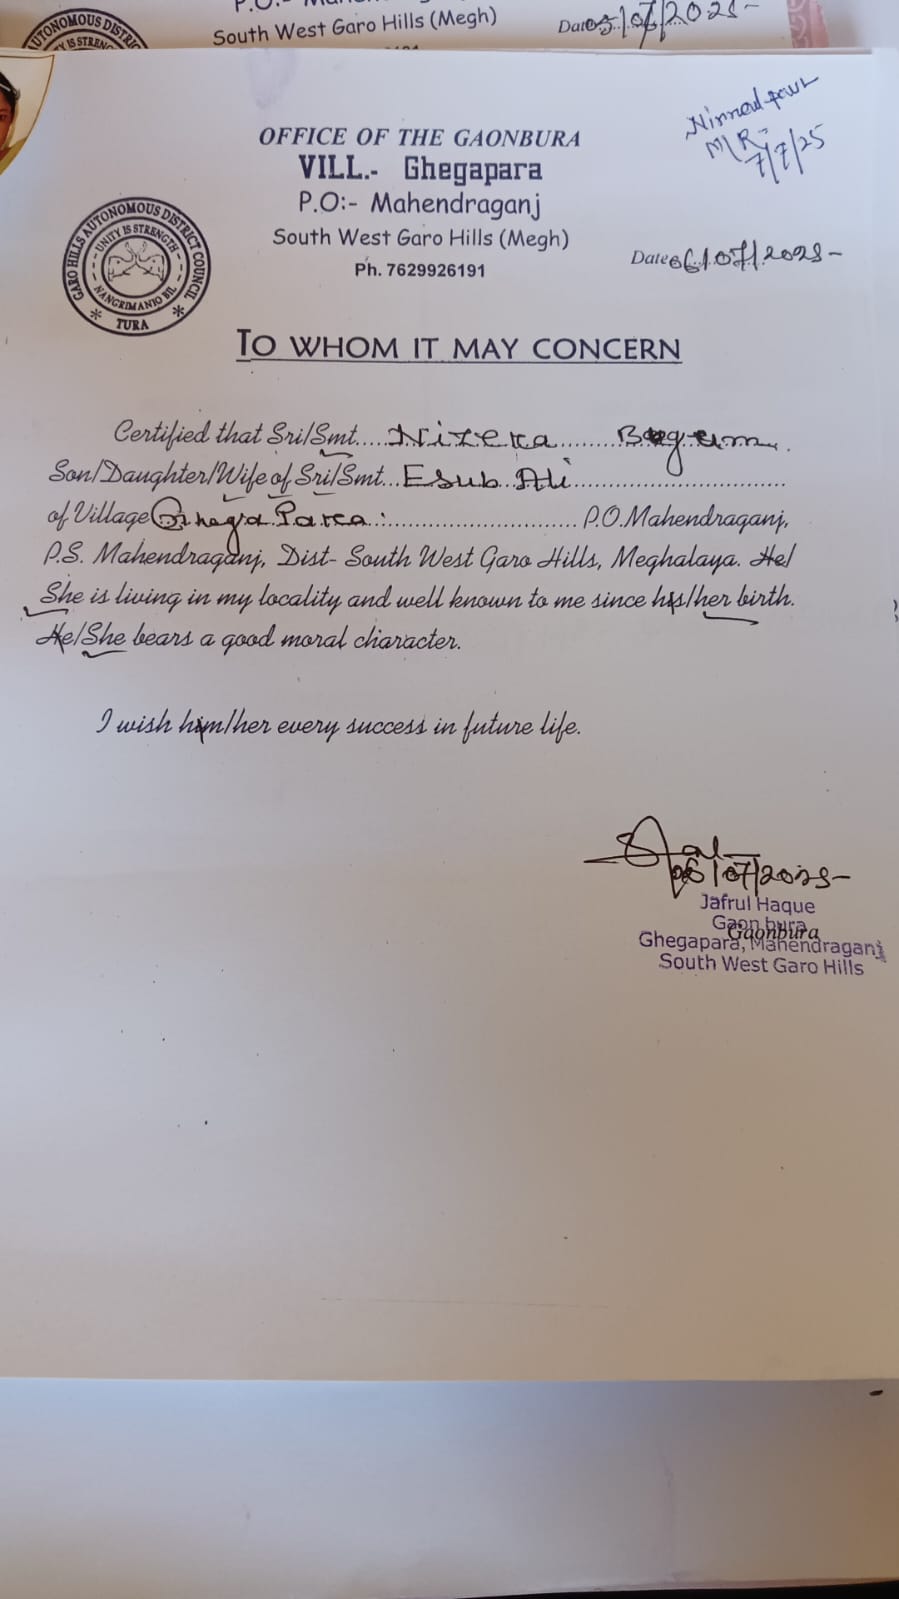 South West Garo Hills (Megh)
Date 05/07/2025-
OFFICE OF THE GAONBURA
VILL.- Ghegapara
P.O:- Mahendraganj
South West Garo Hills (Megh)
Ph. 7629926191
M/R-
7/7/25
Date 06/07/2025-
GARO HILLS AUTONOMOUS DISTRICT COUNCIL
UNITY IS STRENGTH
TURA
TO WHOM IT MAY CONCERN
Certified that Sri/Smt....Nizera........Begum.
Son/Daughter/Wife of Sri/Smt...Esub Ali..............................
of Village Ghega Para:........................... P.O.Mahendraganj,
P.S. Mahendraganj, Dist- South West Garo Hills, Meghalaya. He/
She is living in my locality and well known to me since his/her birth.
He/She bears a good moral character.
I wish him/her every success in future life.
06/07/2025-
Jafrul Haque
Gaon bura
Gaonbura
Ghegapara, Mahendraganj
South West Garo Hills